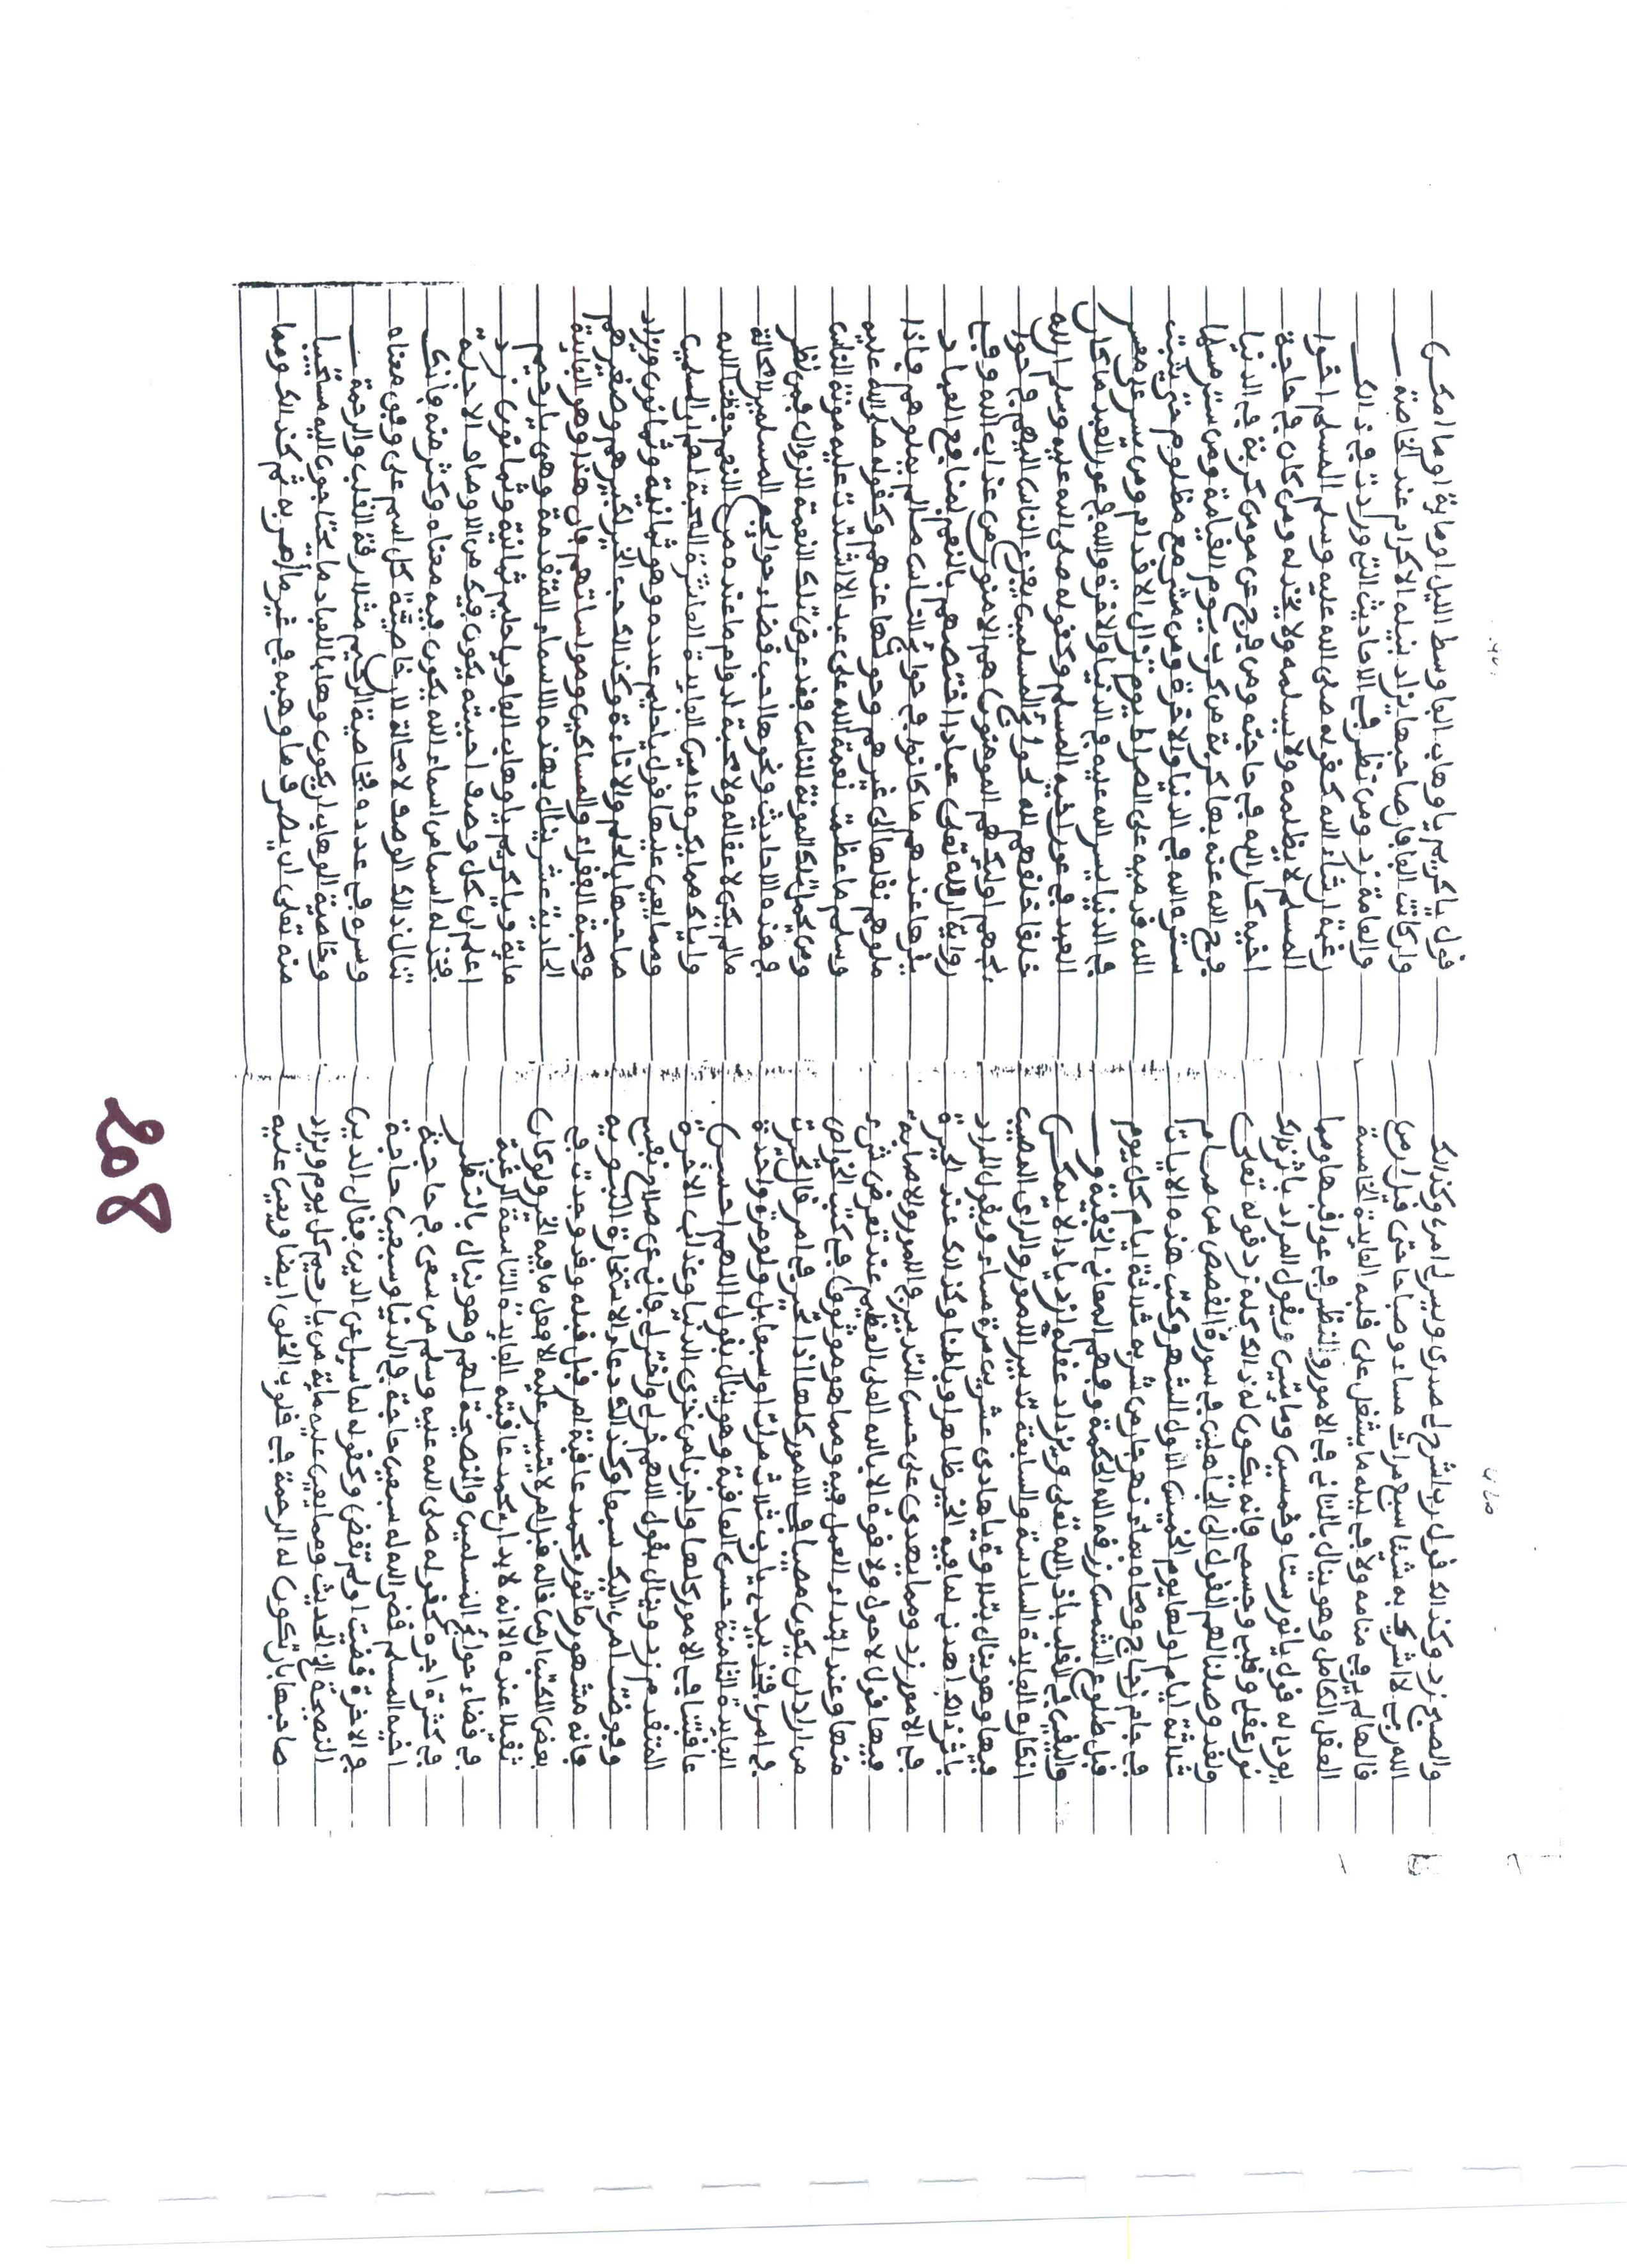 والصبح زد وكذالك قول رب اشرح لي صدري ويسر لي امري وكذالك
الله ربي لا شريك به شيئا سبع مرات مساء وصباحا حتى قيل ان من
قالها لم ير في منامه ولا في ليله ما يشغل على قلبه الفايدة الخامسة
العقل الكامل وهو ينال بالتاني في الامور والنظر في عواقبها ومما
يورد له قول يانور ستا وخمسين ومايتين ويقول المراد باثر ذالك
نور عقلي وقلبي وجسمي فانه يكون له ذالك كله زد قوله تعلى
ولقد وصلنا لهم القول الى الجاهلين في سورة القصص من صام
ثلاثة ايام اولها يوم الخميس الاول الشهر وكتب هذه الايات
في جام زجاج ومحاه بماء نهر جار من شربه ثلاثة ايام كل يوم
قبل طلوع الشمس رزقه الله الحكمة وفهم المعاني الخفية و
واليقين في القلب باذن الله تعلى ويزداد عقله ازديادا لا يمكن
انكاره الفايدة السادسة والسابعة تدبير الامور والراي المصيب
فيها وهو ينال بتلاوة ياهادي عشرين مرة مساء ويقول المراد
باثر ذالك اهدني لما فيه الخير ظاهرا وباطنا وكذالك عند الحيرة
في الامور زد ومما يعدي على حسن التدبير في الامور والاصابة
فيها قول لا حول ولا قوة الا بالله العلي العظيم عند تعرض شيء
منها وعند ابتداء العمل فيه ومما هو موثوق في كتب الخواص
من اراد ان يكون مصيبا في الامور كلها اذا تحير في امر قال تحيرت
في امري فخذ بيدي يارب ثلاث مرات او سبعا بل ولو مرة واحدة
الفائدة الثامنة حسن العاقبة وهو ينال بقول اللهم احسن
عاقبتنا في الامور كلها واجرنا من خزي الدنيا وعذاب الاخرة
المتقدم زد وينال بقول اللهم خر لي واختر لي فاني عن صلاح نفسي
وفوضت امري اليك سبعا وكذالك دعاء الاستخارة النبوية
فانه مشهور ماثور محمد عافبة امر قبل قبله وقد وجدت في
بعض الكتب ان من قاله فان امر لا يتيسر عليه الا فعل ما فيه الخير ولو كان
ثقلا عنده الا انه لا بد ان يحمد عاقبته الفايدة التاسعة الرغبة
في قضاء حوائج المسلمين والنصيحة لهم وهو ينال بالنظر
في كثرة اجره كقوله صلى الله عليه وسلم من سعى في حاجة
اخيه المسلم قضى الله له سبعين حاجة في الدنيا وسبعين حاجة
في الاخرة قضيت او لم تقض وكقوله لما سيل عن الدين فقال الدين
النصيحة الخ الحديث ومما يعين عليه ماية من يارحيم كل يوم ويزاد
صاحبها بان تكون له الرحمة في قلوب الخلق ايضا ويعين عليه
قول ياكريم ياوهاب الفا وسط الليل او ماية او ما امكن
وان كانت الفا فان صاحبها يزاد بنيله الاكرام عند الخاصة
والعامة زد ومن نظر في الاحاديث التي وردت في ذالك
رغبة ان شاء الله كقوله صلى الله عليه وسلم المسلم اخوا
المسلم لا يظلمه ولا يسلمه ولا يخذله ومن كان في حاجة
اخيه كان الله في حاجته ومن فرج عن مومن كربة في الدنيا
فرج الله عنه بها كربة من كرب يوم القيامة ومن ستر مسلما
ستره الله في الدنيا والاخرة ومن مشى مع مظلوم حتى يثبت
الله قدميه على الصراط يوم تزال الاقدام ومن يسر على معسر
في الدنيا يسر الله عليه في الدنيا والاخرة والله في عون العبد ما كان
العبد في عون اخيه المسلم وكقوله صلى الله عليه وسلم ان لله
خلقا خلقهم لله لحوائج المسلمين يفزع الناس اليهم في حوا
ئجهم اولئك هم المومنون هم الامنون من عذاب الله وفي
رواية ان لله تعلى عبادا اختصهم بالنعم لمنافع العباد
يقرها عندهم ما كانوا في حوائج الناس ما لم يملوهم فاذا
ملوهم نقلها الى غيرهم وحولها عنهم وكقوله صلى الله عليه
وسلم ما عظمت نعمة الله على عبد الا اشتدت عليه مونة الناس
ومن لم يحمل تلك المونة للناس فقد عرض تلك النعمة للزوال فمن نظر
في هذه الاحاديث ونحوها احب قضاء حوايج المسلمين لا محالة
مالم يكن لا عقل له ولا محبة لدوام ما عنده من النعم حفظنا الله
واياك مما يكره ءامين الفايدة العاشرة المحبة لهم اي المسلمين
ومما يعين عليها قول ياحليم عدده وهو ثمانية وثمانون ويزاد
صاحبها بالحلم والاناءة وكذالك حب الخير لكبيرهم وصغيرهم
ومحبة الفقراء والمساكين ومواساتهم فان هذا وهو الفايدة
الحادية عشر ينال بهذه الاسماء المتقدمة وهي يارحيم
ماية وياكريم ياوهاب الفا وياحليم ثمانية وثمانون زد
اعلم ان كل وصف احببته يكون فيك من الاوصاف الاحدية
فخذ له اسما من اسماء الله يكون فيه معناه وكثر منه فانك
تنال ذالك الوصف لا محالة لان خاصية كل اسم على وفق معناه
وسره في عدده فخاصية الرحيم مثلا رقة القلب والرحمة
وخاصية الوهاب ان يكون وهابا للعباد ما يحتاجون اليه مستحيبا
منه تعلى ان يصرف ما وهبه في غير ما امر به ثم كذالك ومما
208